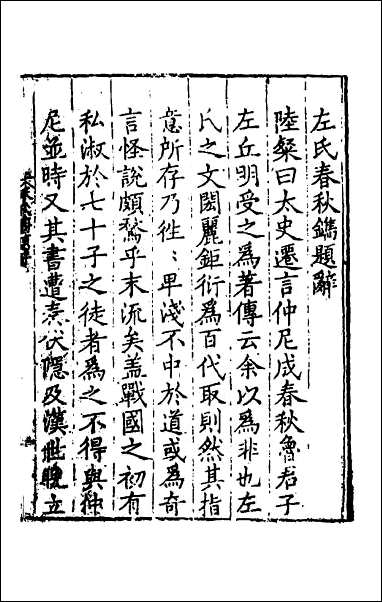 左氏春秋鐫題辭
陸粲曰太史遷言仲尼成春秋魯君子
左丘明受之爲著傳云余以爲非也左
氏之文閎麗鉅衍爲百代取則然其指
意所存乃徃〻卑淺不中於道或爲奇
言怪說頗騖乎末流矣盖戰國之初有
私淑於七十子之徒者爲之不得與仲
尼並時又其書遭焚伏隱及漢世晚立